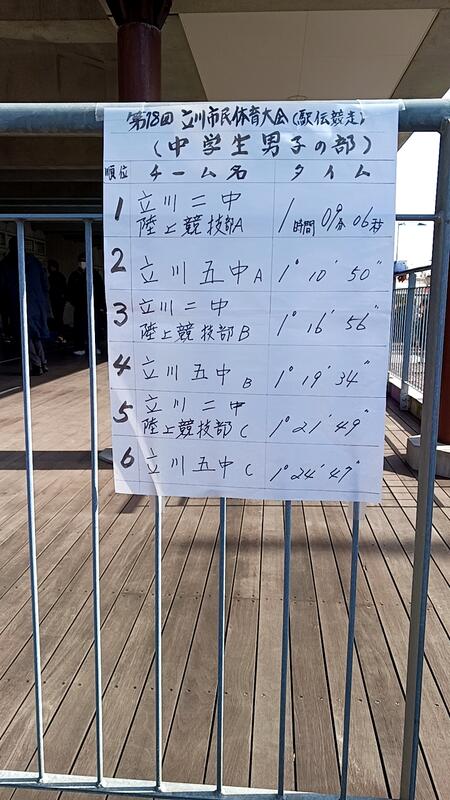 第18回 立川市民体育大会(駅伝競走)
(中学生男子の部)
順位 チーム名 タイム
1 立川二中
陸上競技部A 1時間09分06秒
2 立川五中A 1°10′50″
3 立川二中
陸上競技部B 1°16′56″
4 立川五中B 1°19′34″
5 立川二中
陸上競技部C 1°21′49″
6 立川五中C 1°24′47″